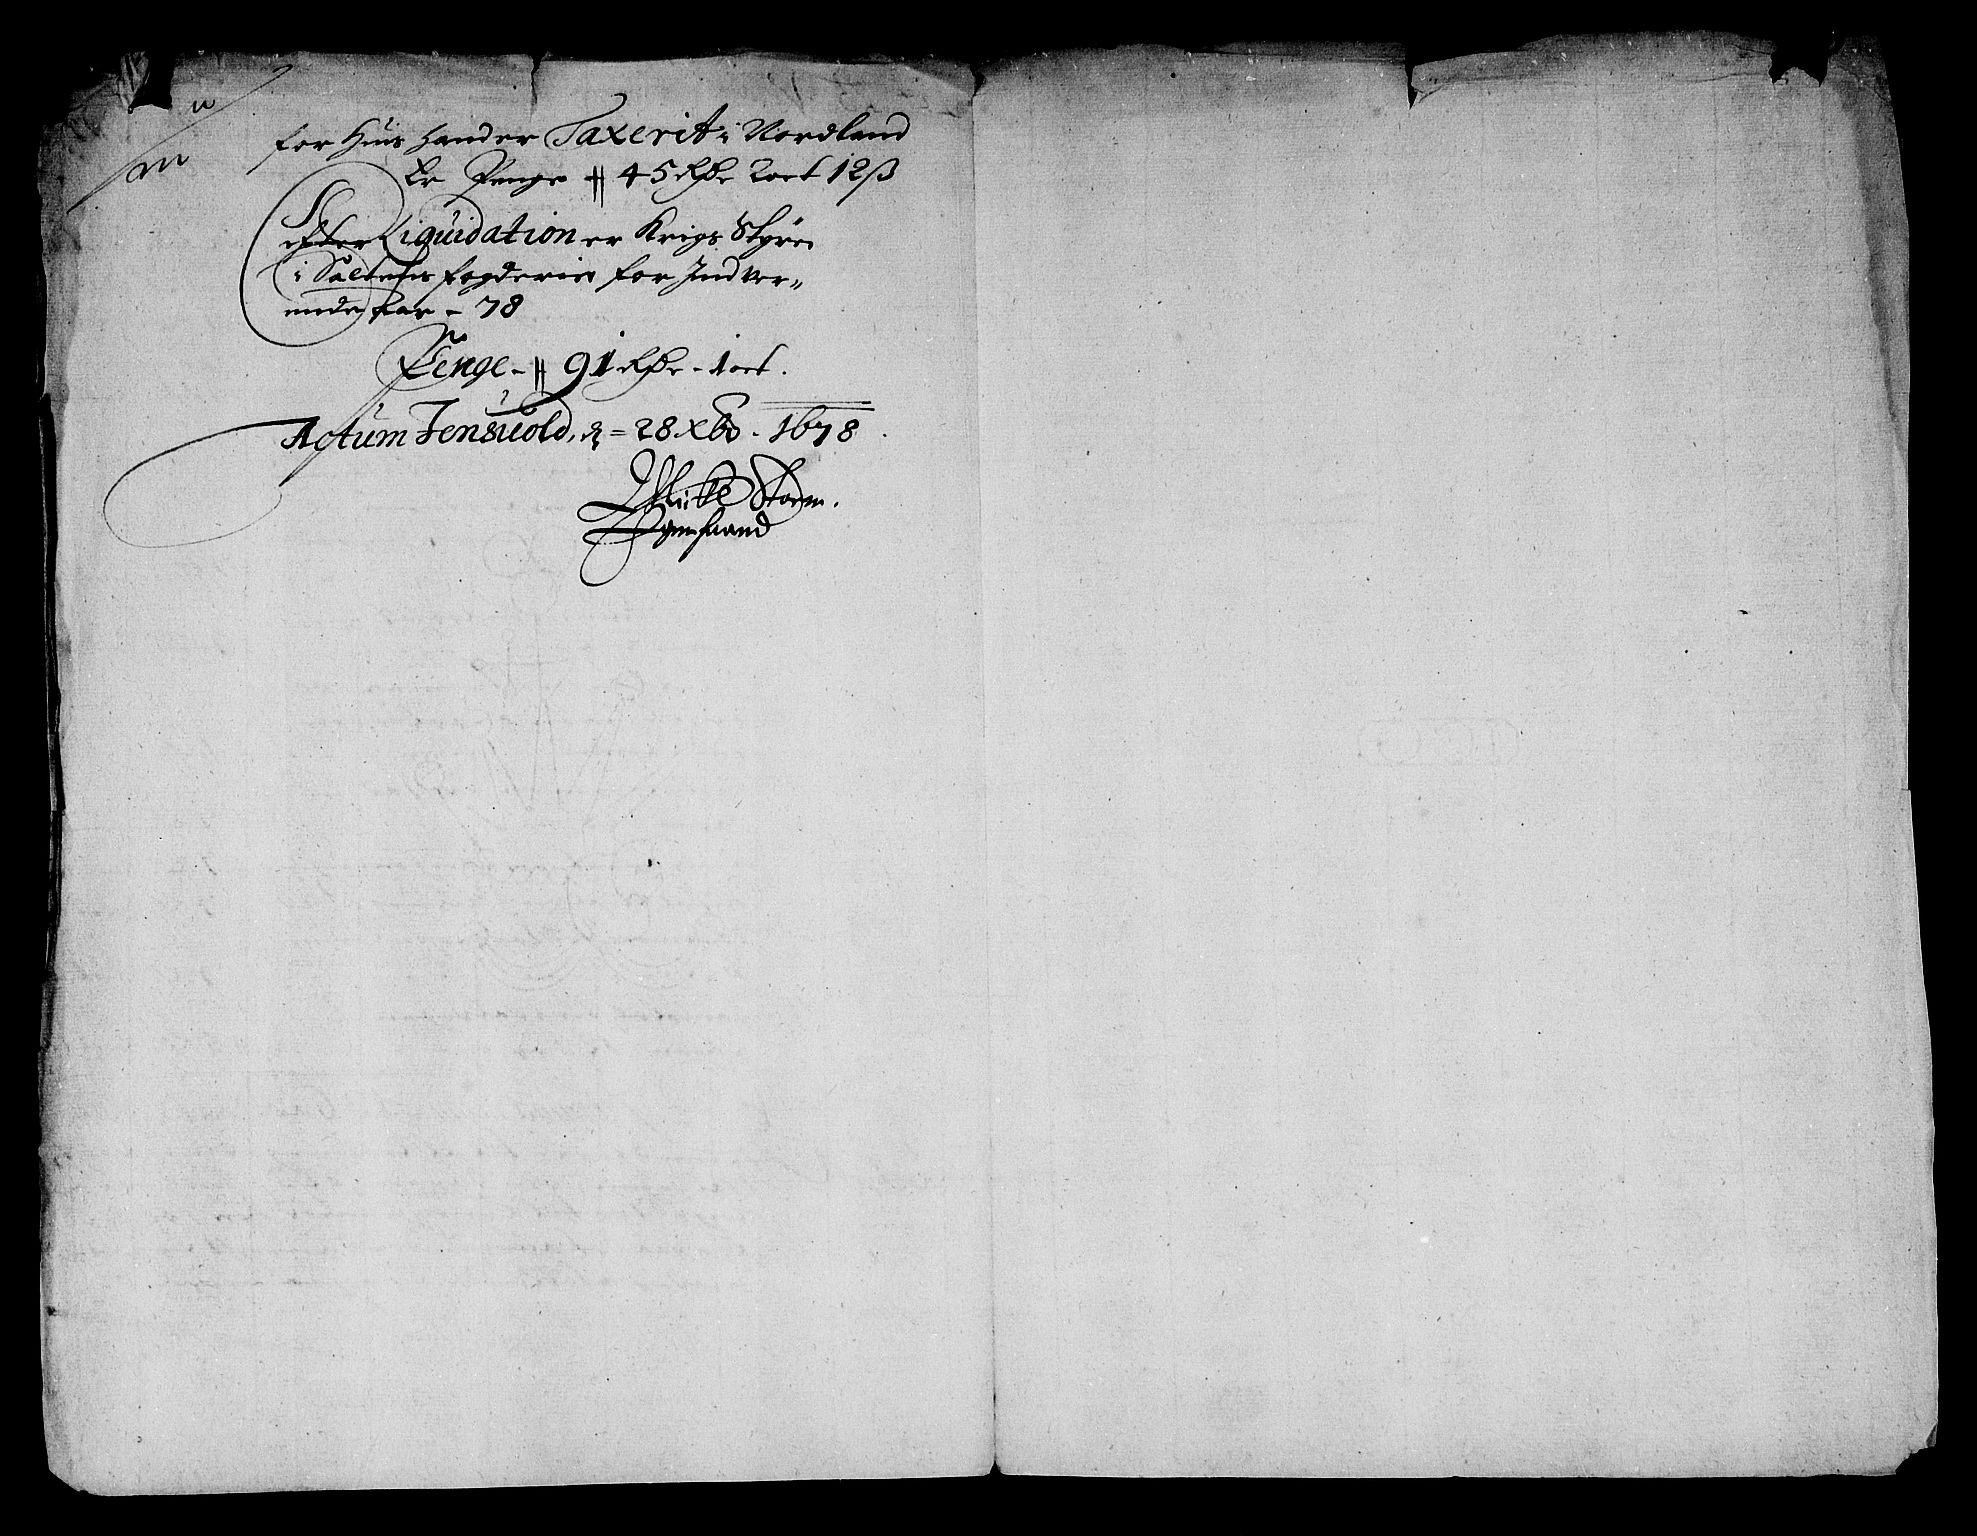 for Huis hander Taxerit i Nordland
Er Penge 45 Rdr 2 ort 12 ß
Efter Liquidation er Krigs Styren
i Saltens fogderie for Indver-
ende Aar - 78
Penge - 91 Rdr - 1 ort.
Actum Jensuold, d = 28 Xbr - 1678.
Storm.
Egenhaand